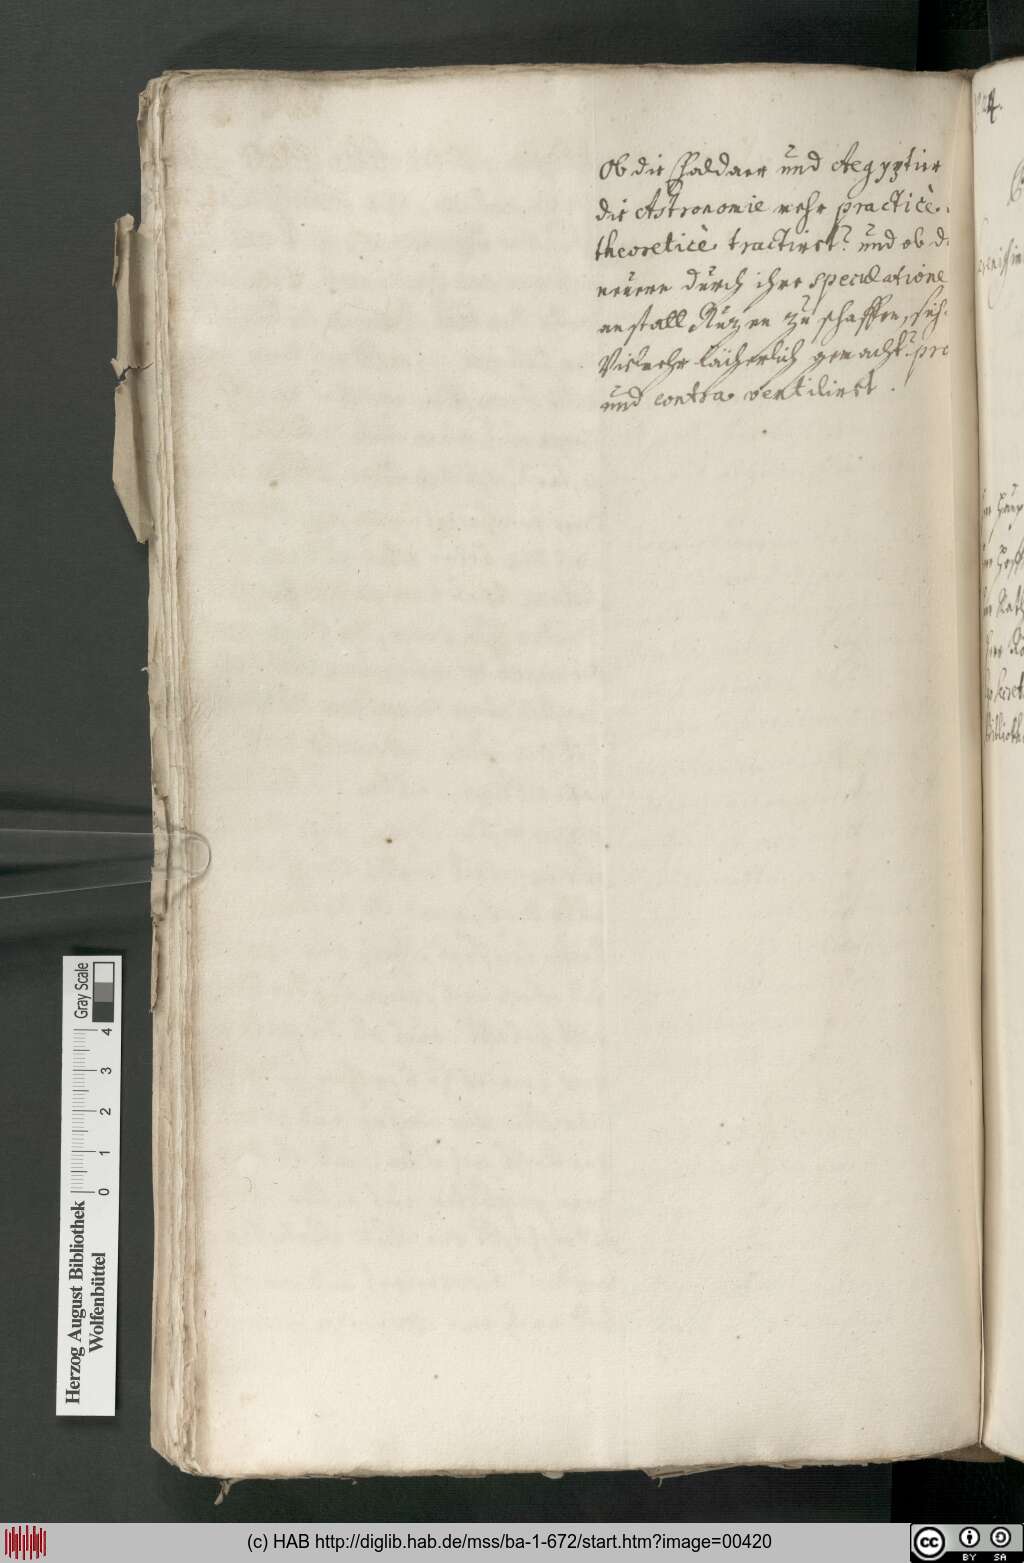 Ob die Chaldaer und Aegyptier
die Astronomie mehr practicè
theoreticè tractiret? und ob d
neuere durch ihre speculatione
anstatt Nuzen zu schaffen, sich
Vielmehr lächerlich gemacht? pro
und contra ventiliret.
4.
Herzog August Bibliothek
Wolfenbüttel
0 1 2 3 4
Gray Scale
(c) HAB http://diglib.hab.de/mss/ba-1-672/start.htm?image=00420
cc BY SA